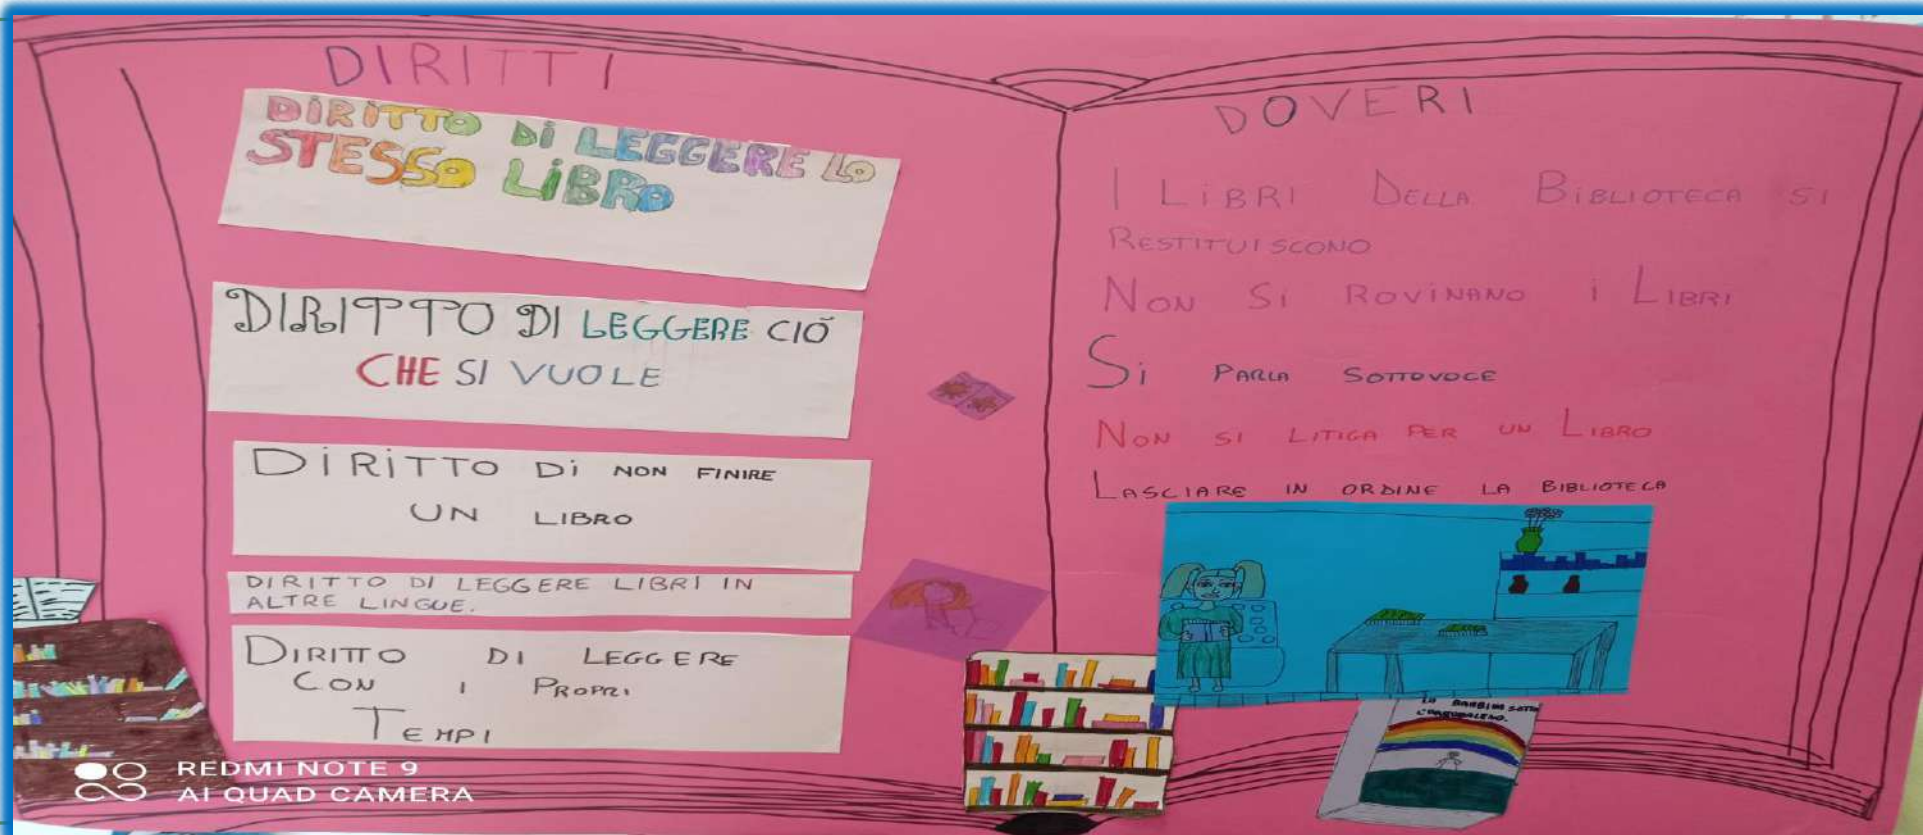 DIRITTI
DIRITTO DI LEGGERE LO
STESSO LIBRO
DIRITTO DI LEGGERE CIÒ
CHE SI VUOLE
DIRITTO DI NON FINIRE
UN LIBRO
DIRITTO DI LEGGERE LIBRI IN
ALTRE LINGUE.
DIRITTO DI LEGGERE
CON I PROPRI
TEMPI
DOVERI
I LIBRI DELLA BIBLIOTECA SI
RESTITUISCONO
NON SI ROVINANO I LIBRI
SI PARLA SOTTOVOCE
NON SI LITIGA PER UN LIBRO
LASCIARE IN ORDINE LA BIBLIOTECA
LA BAMBINA SOTTO
L'ARCOBALENO.
REDMI NOTE 9
AI QUAD CAMERA